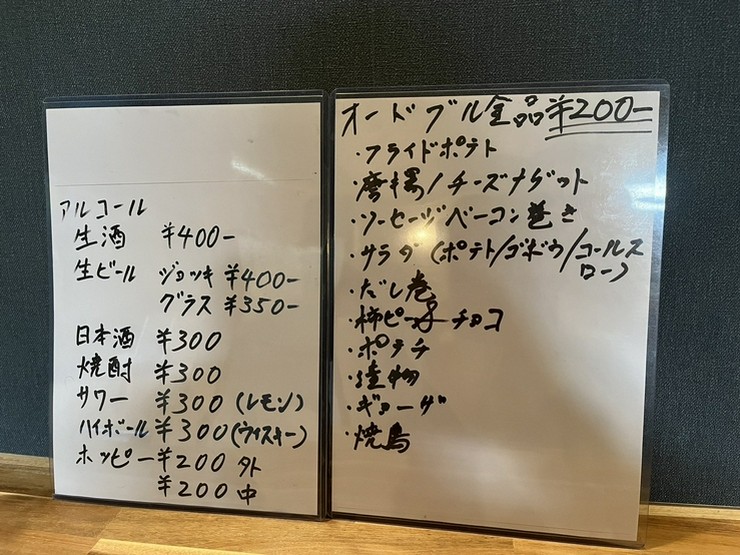 アルコール
生酒 ¥400-
生ビール ジョッキ ¥400-
グラス ¥350-
日本酒 ¥300
焼酎 ¥300
サワー ¥300 (レモン)
ハイボール ¥300 (ウィスキー)
ホッピー ¥200 外
¥200 中
オードブル全品¥200-
・フライドポテト
・唐揚/チーズナゲット
・ソーセージベーコン巻き
・サラダ (ポテト/ゴボウ/コールス
ロー)
・だし巻
・柿ピー チョコ
・ポテチ
・漬物
・ギョーザ
・焼鳥